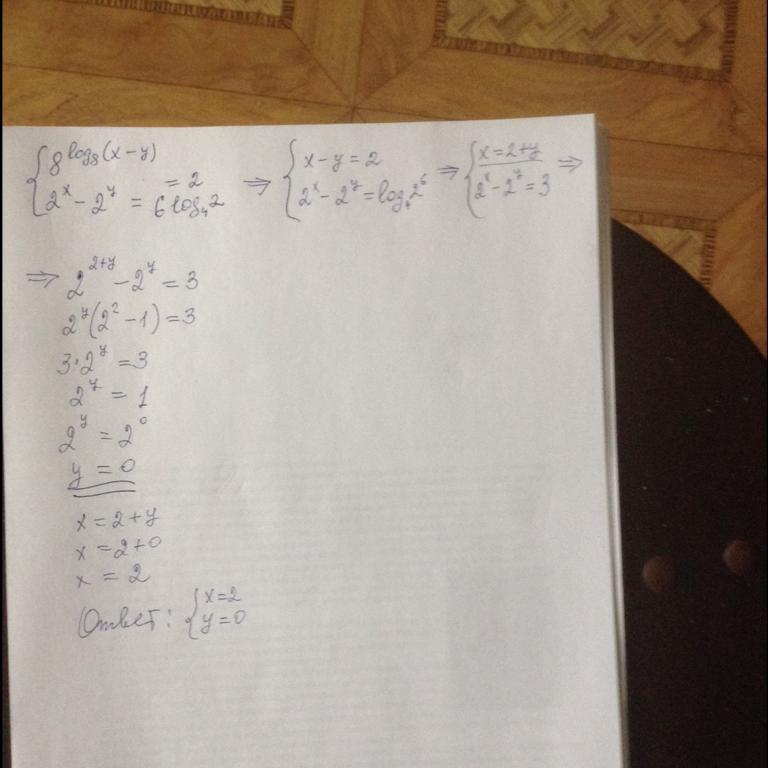 { 8^log₈(x-y) = 2 ⇒ { x-y=2 ⇒ { x=2+y ⇒
{ 2^x - 2^y = 6log₄2 { 2^x - 2^y = log₄2^6 { 2^x - 2^y = 3
⇒ 2^(2+y) - 2^y = 3
2^y(2²-1)=3
3·2^y=3
2^y = 1
2^y = 2^0
y = 0
x = 2+y
x = 2+0
x = 2
Ответ: { x=2
{ y=0